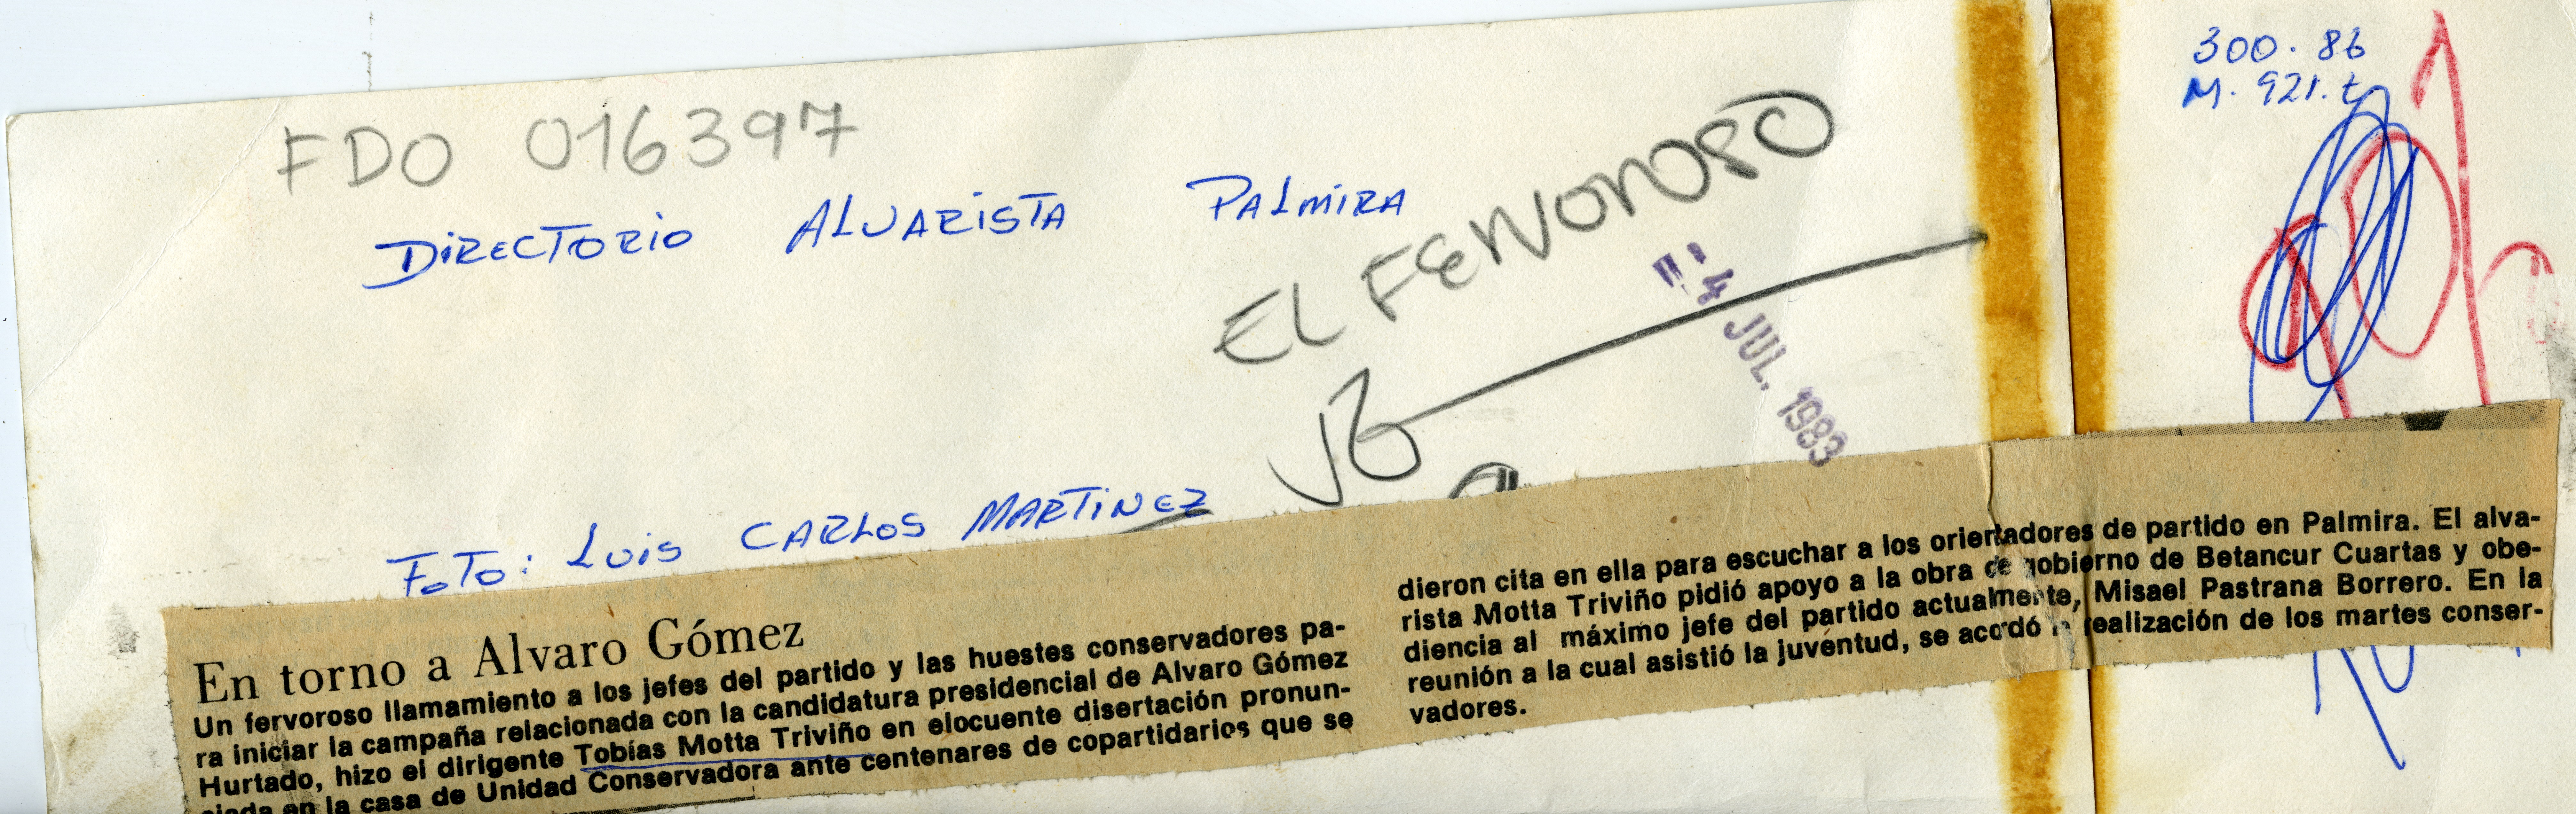 FDO 016397
DIRECTORIO ALVARISTA PALMIRA
EL FERVOROSO
4 JUL. 1983
300.86
M.921.t
FOTO: LUIS CARLOS MARTINEZ
En torno a Alvaro Gómez
Un fervoroso llamamiento a los jefes del partido y las huestes conservadores pa-
ra iniciar la campaña relacionada con la candidatura presidencial de Alvaro Gómez
Hurtado, hizo el dirigente Tobías Motta Triviño en elocuente disertación pronun-
ciada en la casa de Unidad Conservadora ante centenares de copartidarios que se
dieron cita en ella para escuchar a los orientadores de partido en Palmira. El alva-
rista Motta Triviño pidió apoyo a la obra de gobierno de Betancur Cuartas y obe-
diencia al máximo jefe del partido actualmente, Misael Pastrana Borrero. En la
reunión a la cual asistió la juventud, se acordó la realización de los martes conser-
vadores.